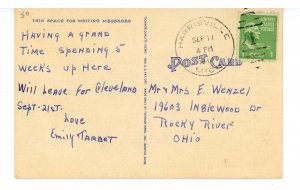 50
THIS SPACE FOR WRITING MESSAGES
HAVING A GRAND
TIME SPENDING 5
WEEK'S UP HERE
WILL LEAVE FOR Cleveland
SEPT-21ST.
Love
Emily TARBET
HARRISVILLE
SEP 11
4 PM
MICH
POST CARD
1
Mr & Mrs E. WENZEL
19603 INGLEWOOD DR
ROCKY RIVER
OHIO